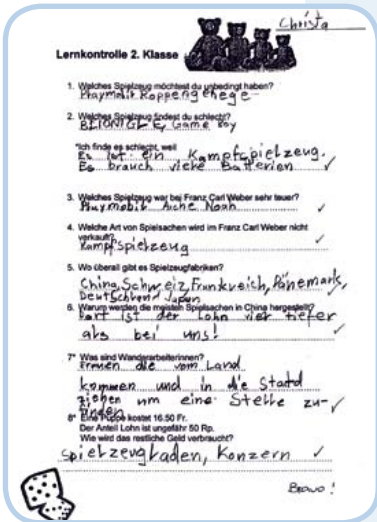 Christa
Lernkontrolle 2. Klasse
1. Welches Spielzeug möchtest du unbedingt haben?
Playmobil Koppengehege
2. Welches Spielzeug findest du schlecht?
BEIONIGLE, Game Boy
*Ich finde es schlecht, weil
Es ist ein Kampfspielzeug.
Es brauch viele Batterien
3. Welches Spielzeug war bei Franz Carl Weber sehr teuer?
Playmobil Arche Noah
4. Welche Art von Spielsachen wird im Franz Carl Weber nicht
verkauft?
Kampfspielzeug
5. Wo überall gibt es Spielzeugfabriken?
China, Schweiz, Frankreich, Dänemark,
Deutschland Japan
6. Warum werden die meisten Spielsachen in China hergestellt?
Dort ist der Lohn viel tiefer
als bei uns!
7* Was sind Wanderarbeiterinnen?
Frauen die vom Land
kommen und in die Stadd
ziehen um eine Stelle zu-
finden
8* Eine Puppe kostet 16.50 Fr.
Der Anteil Lohn ist ungefähr 50 Rp.
Wie wird das restliche Geld verbraucht?
Spielzeugladen, Konzern
Bravo!